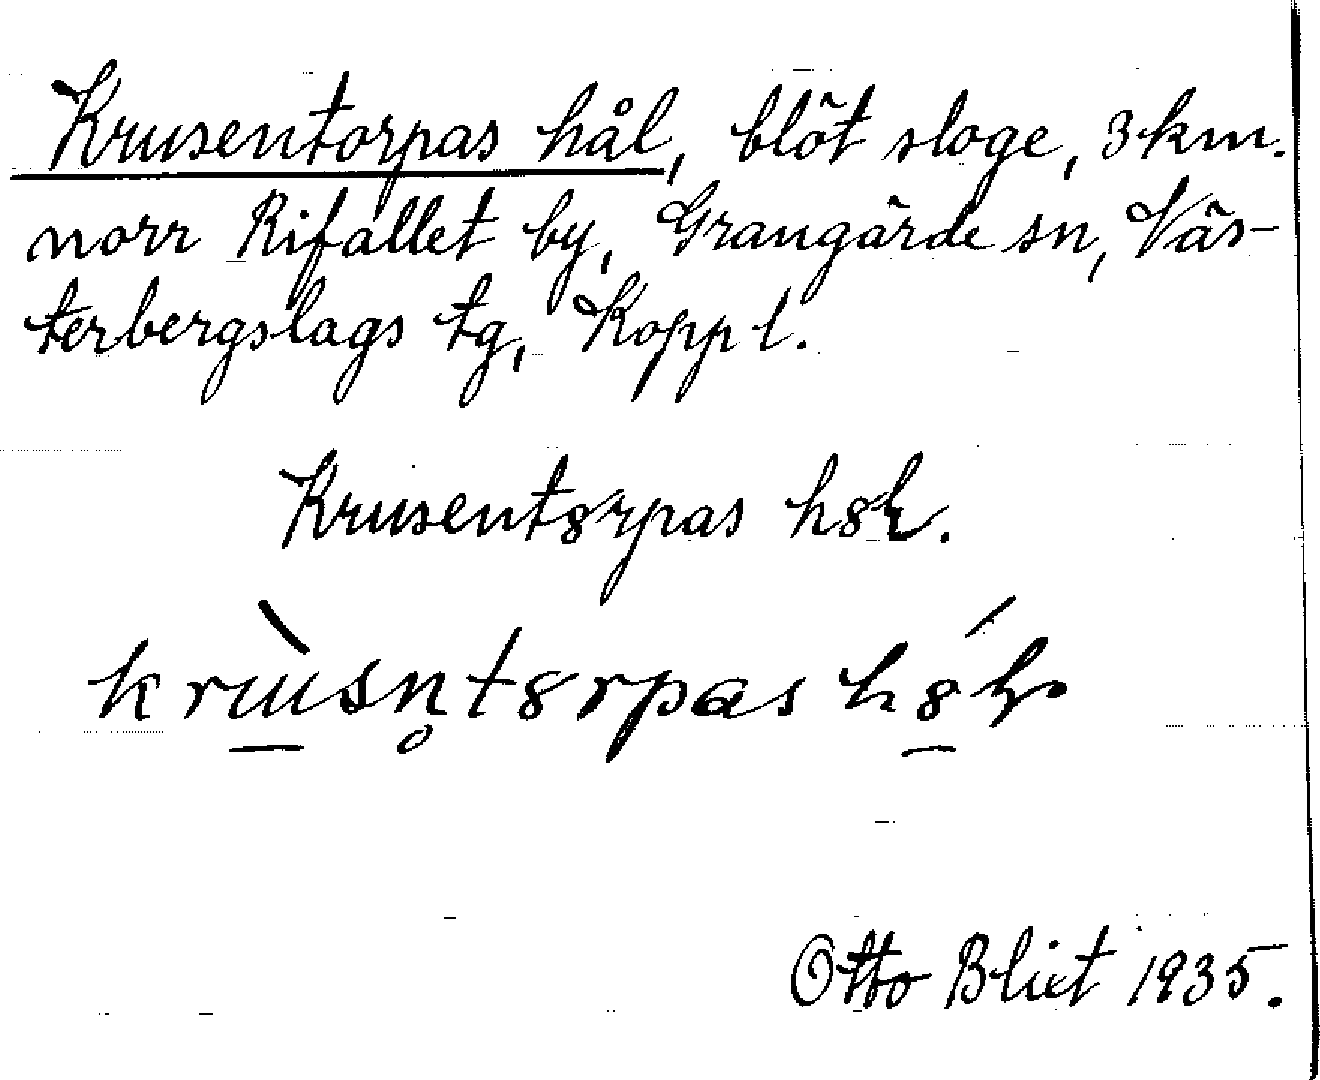 Krusentorpas hål, blöt sloge, 3 km.
norr Rifallet by, Grangärde sn, Väs-
terbergslags tg, Kopp l.
Krusent8rpas h8ɫ.
krùsn̥t8rpas h8́ɫ.
Otto Blixt 1935.